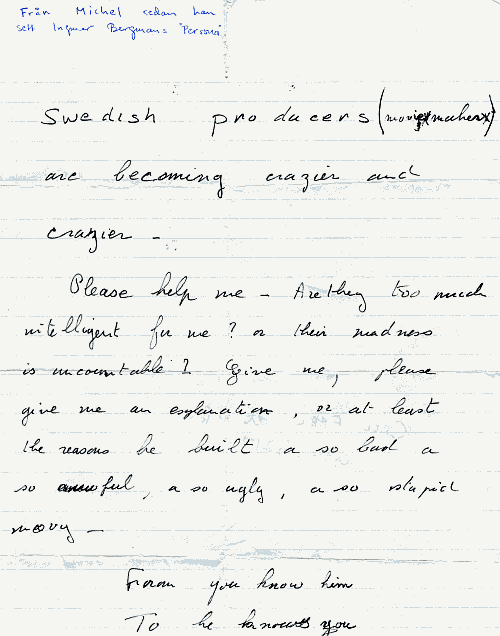 Från Michel sedan han
sett Ingmar Bergmans "Persona"
Swedish producers (movie makers)
are becoming crazier and
crazier -
Please help me - Are they too much
intelligent for me ? or their madness
is uncountable ? Give me, please
give me an explanation, or at least
the reasons he built a so bad a
so awful, a so ugly, a so stupid
moovy -
From you know him
To he knows you